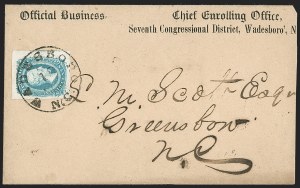 Official Business
Chief Enrolling Office,
Seventh Congressional District, Wadesboro', N
WADESBORO N.C.
C. M. Scott Esqr
Greensboro
NC